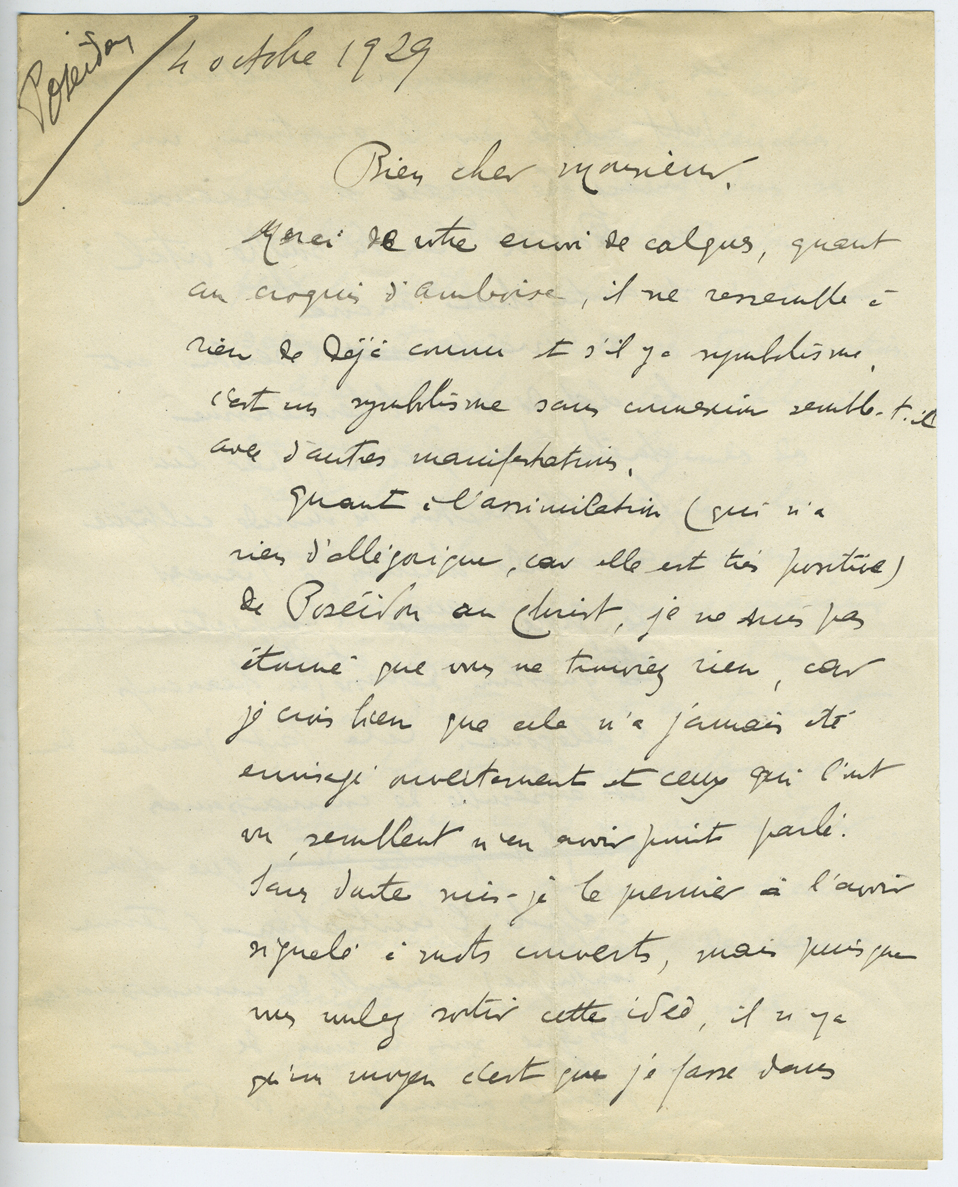 Poseidon
4 octobre 1929
Bien cher monsieur,
Merci de votre envoi de calques, quant
au croquis d'amboise, il ne ressemble à
rien de déjà connu et s'il y a symbolisme,
c'est un symbolisme sans connexion semble-t-il
avec d'autres manifestations.
quant à l'assimilation (qui n'a
rien d'allégorique, car elle est très positive)
de Poséidon au Christ, je ne suis pas
étonné que vous ne trouviez rien, car
je crois bien que cela n'a jamais été
envisagé ouvertement et ceux qui l'ont
vu, semblent n'en avoir point parlé.
Sans doute suis-je le premier à l'avoir
signalé à mots couverts, mais puisque
vous voulez sortir cette idée, il n'y a
qu'un moyen c'est que je fasse dans